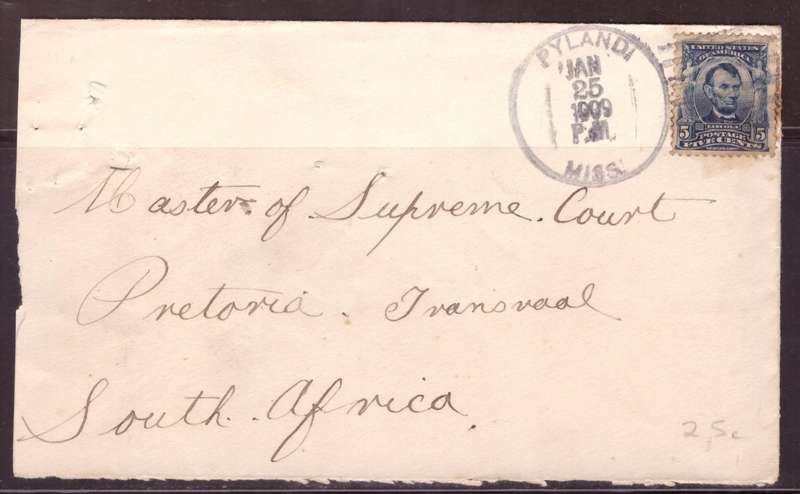 PYLAND
JAN
25
1909
P.M.
MISS.
UNITED STATES
OF AMERICA
LINCOLN
5 POSTAGE 5
FIVE CENTS
Master of Supreme Court
Pretoria. Transvaal
South. Africa.
25c